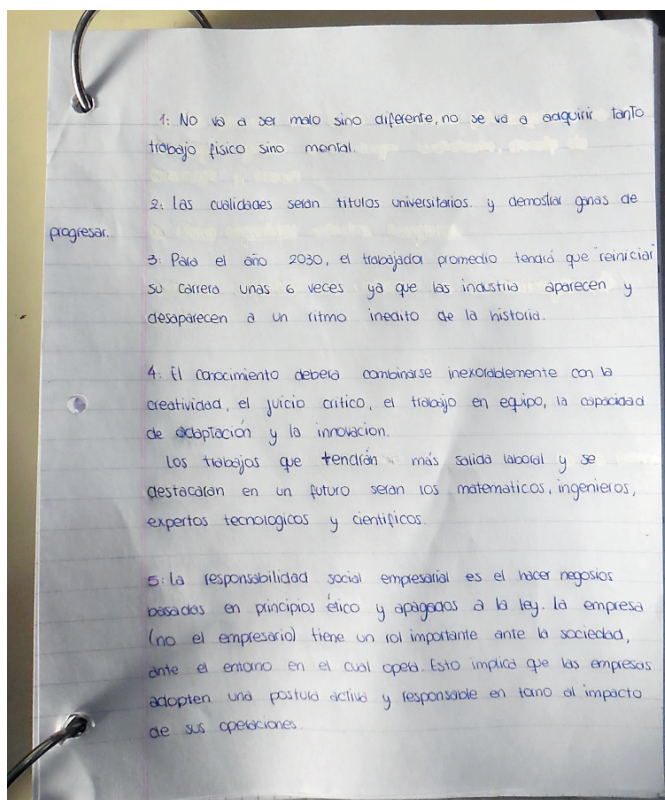 1: No va a ser malo sino diferente, no se va a adquirir tanto
trabajo físico sino mental.
2: las cualidades seran titulos universitarios. y demostrar ganas de
progresar.
3: Para el año 2030, el trabajador promedio tendrá que reiniciar
su carrera unas 6 veces ya que las industria aparecen y
desaparecen a un ritmo inedito de la historia.
4: El conocimiento deberá combinarse inexorablemente con la
creatividad, el juicio critico, el trabajo en equipo, la capacidad
de adaptación y la innovacion.
los trabajos que tendrán más salida laboral y se
destacaran en un futuro seran los matematicos, ingenieros,
expertos tecnologicos y cientificos.
5: la responsabilidad social empresarial es el hacer negosios
basados en principios ético y apagados a la ley. la empresa
(no el empresario) tiene un rol importante ante la sociedad,
ante el entorno en el cual opera. Esto implica que las empresas
adopten una postura activa y responsable en torno al impacto
de sus operaciones.